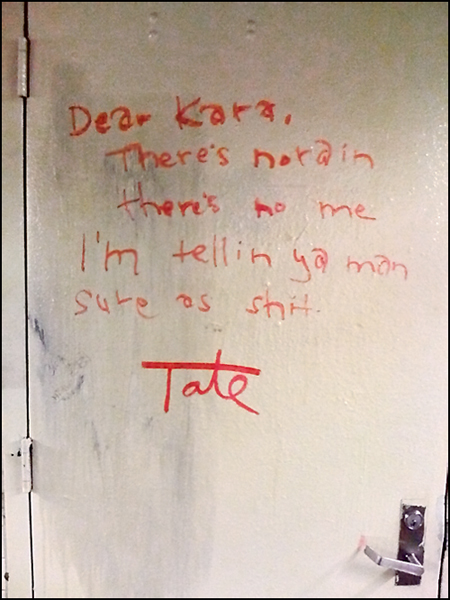 Dear Kara,
There's no rain
there's no me
I'm tellin ya man
sure as shit.
Tate